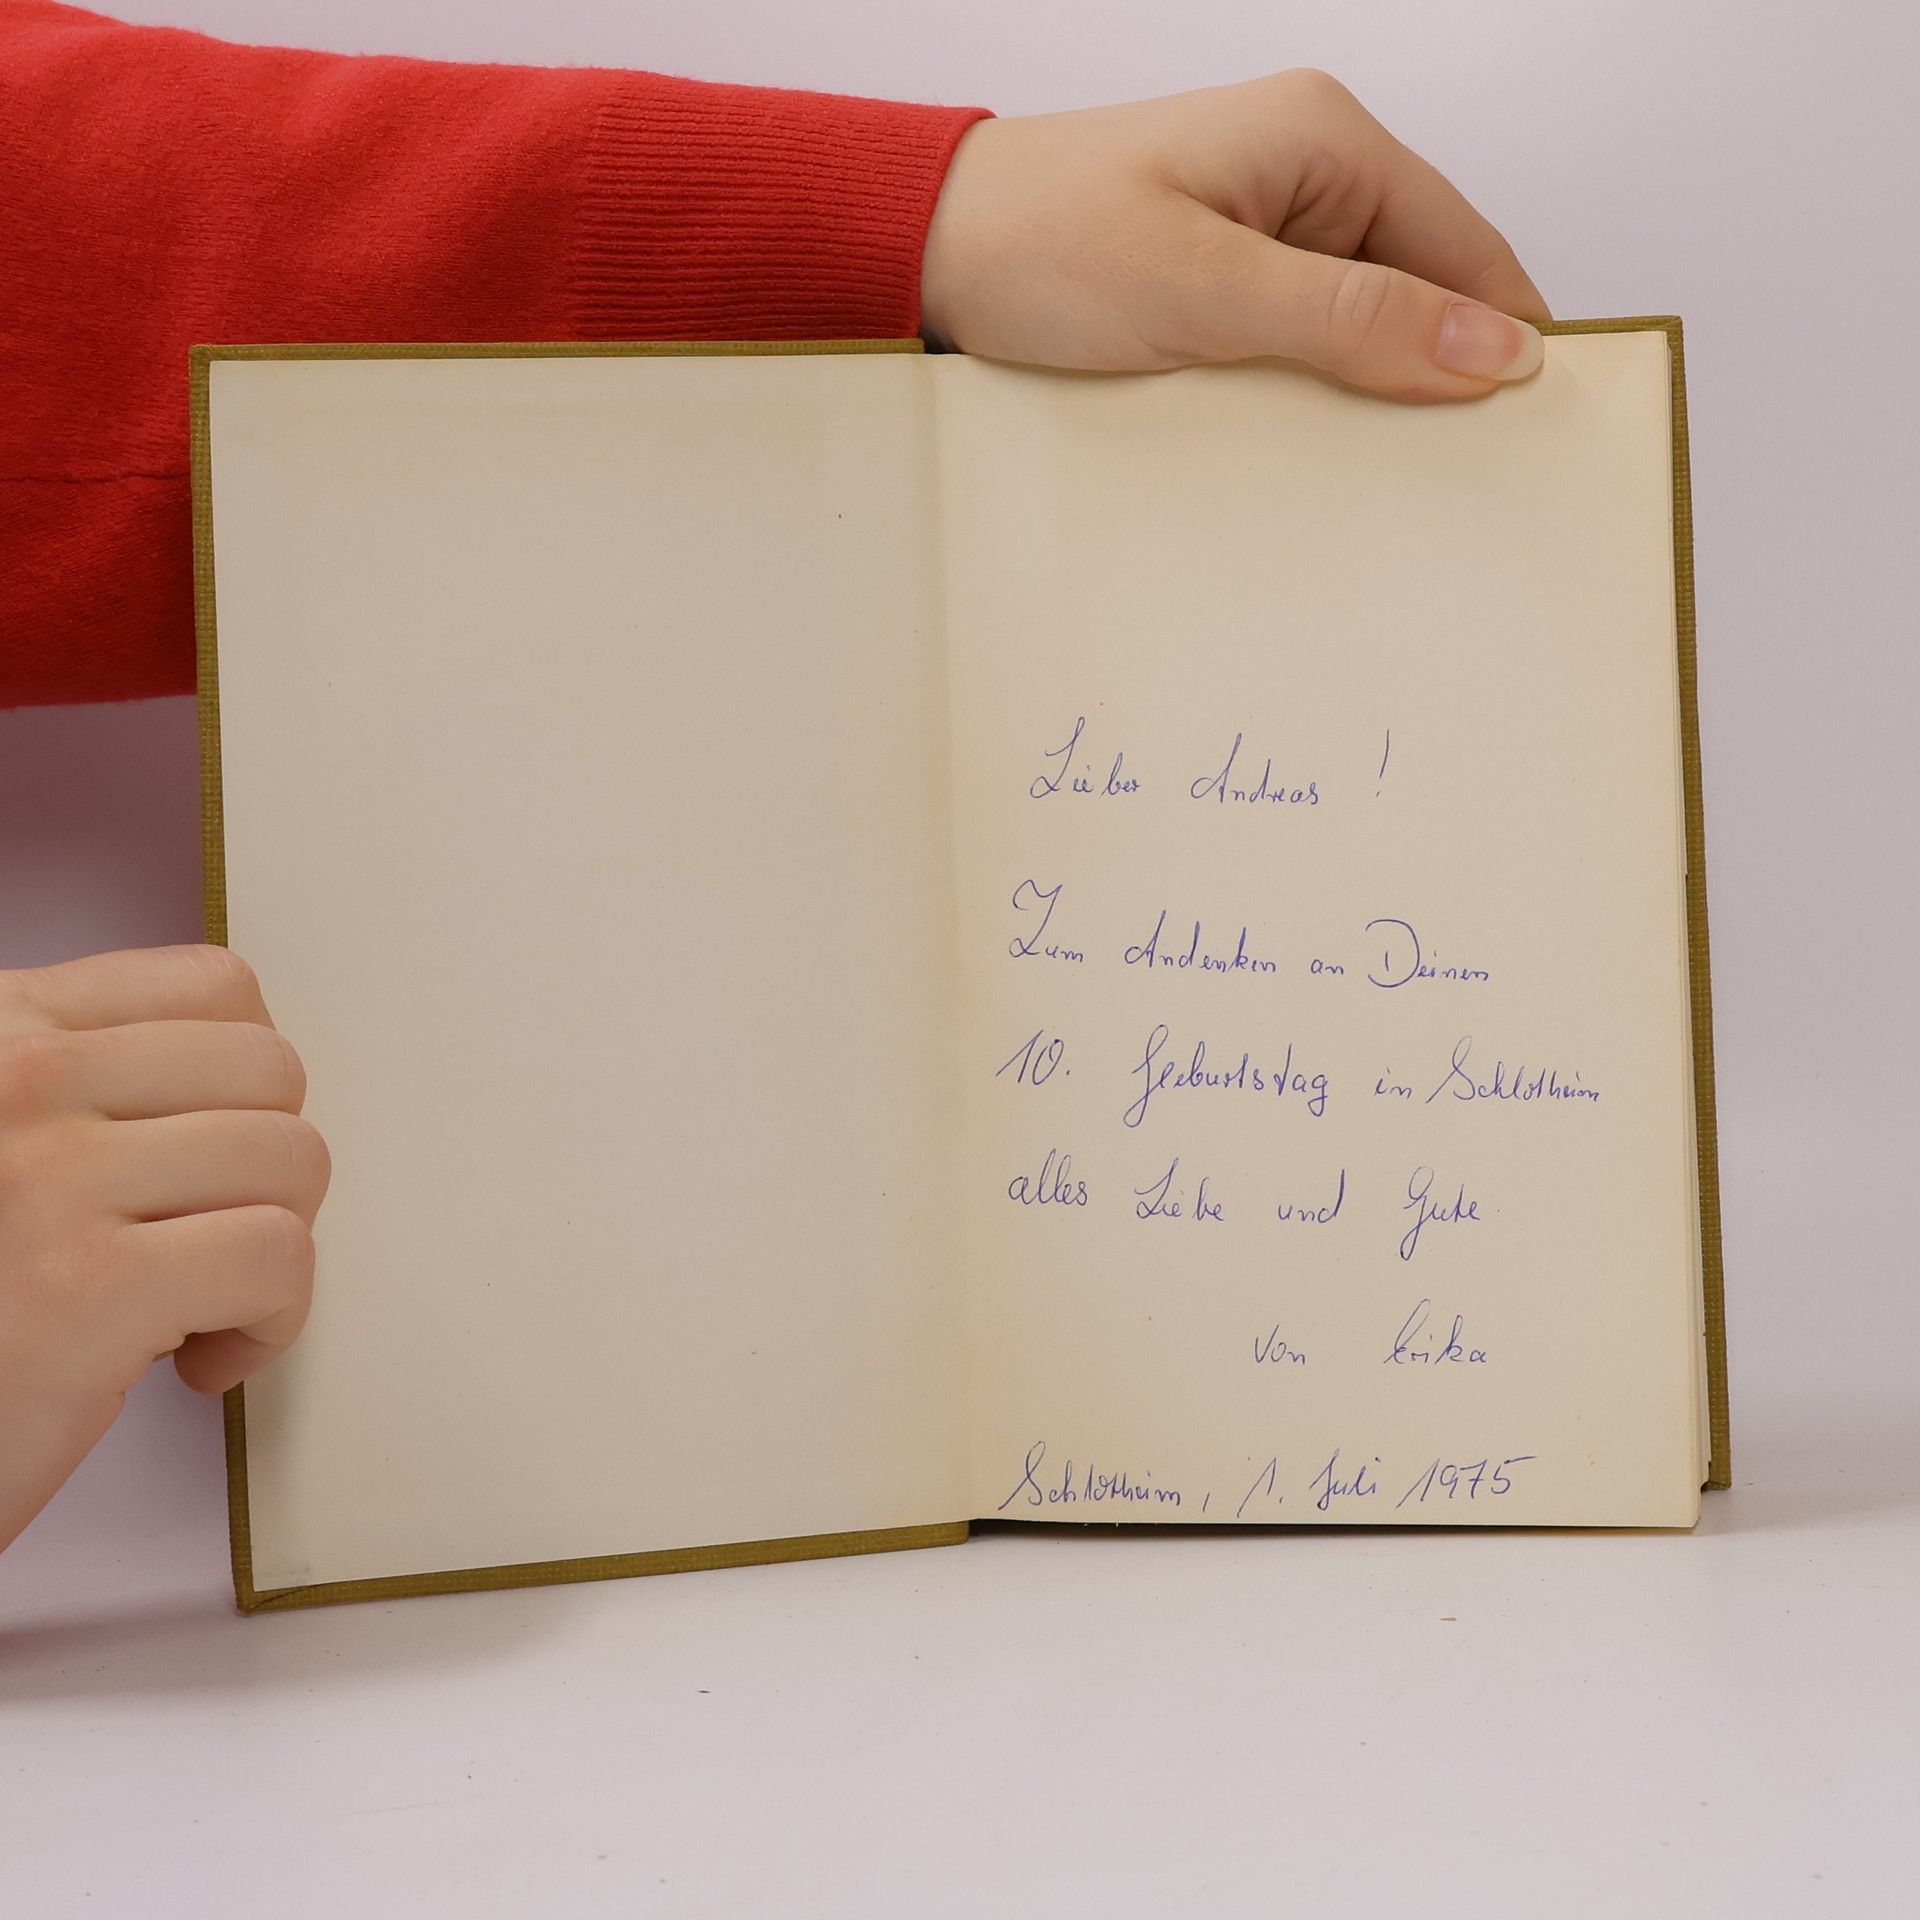 Lieber Andreas !
Zum Andenken an Deinen
10. Geburtstag in Schlotheim
alles Liebe und Gute.
von Erika
Schlotheim, 1. Juli 1975